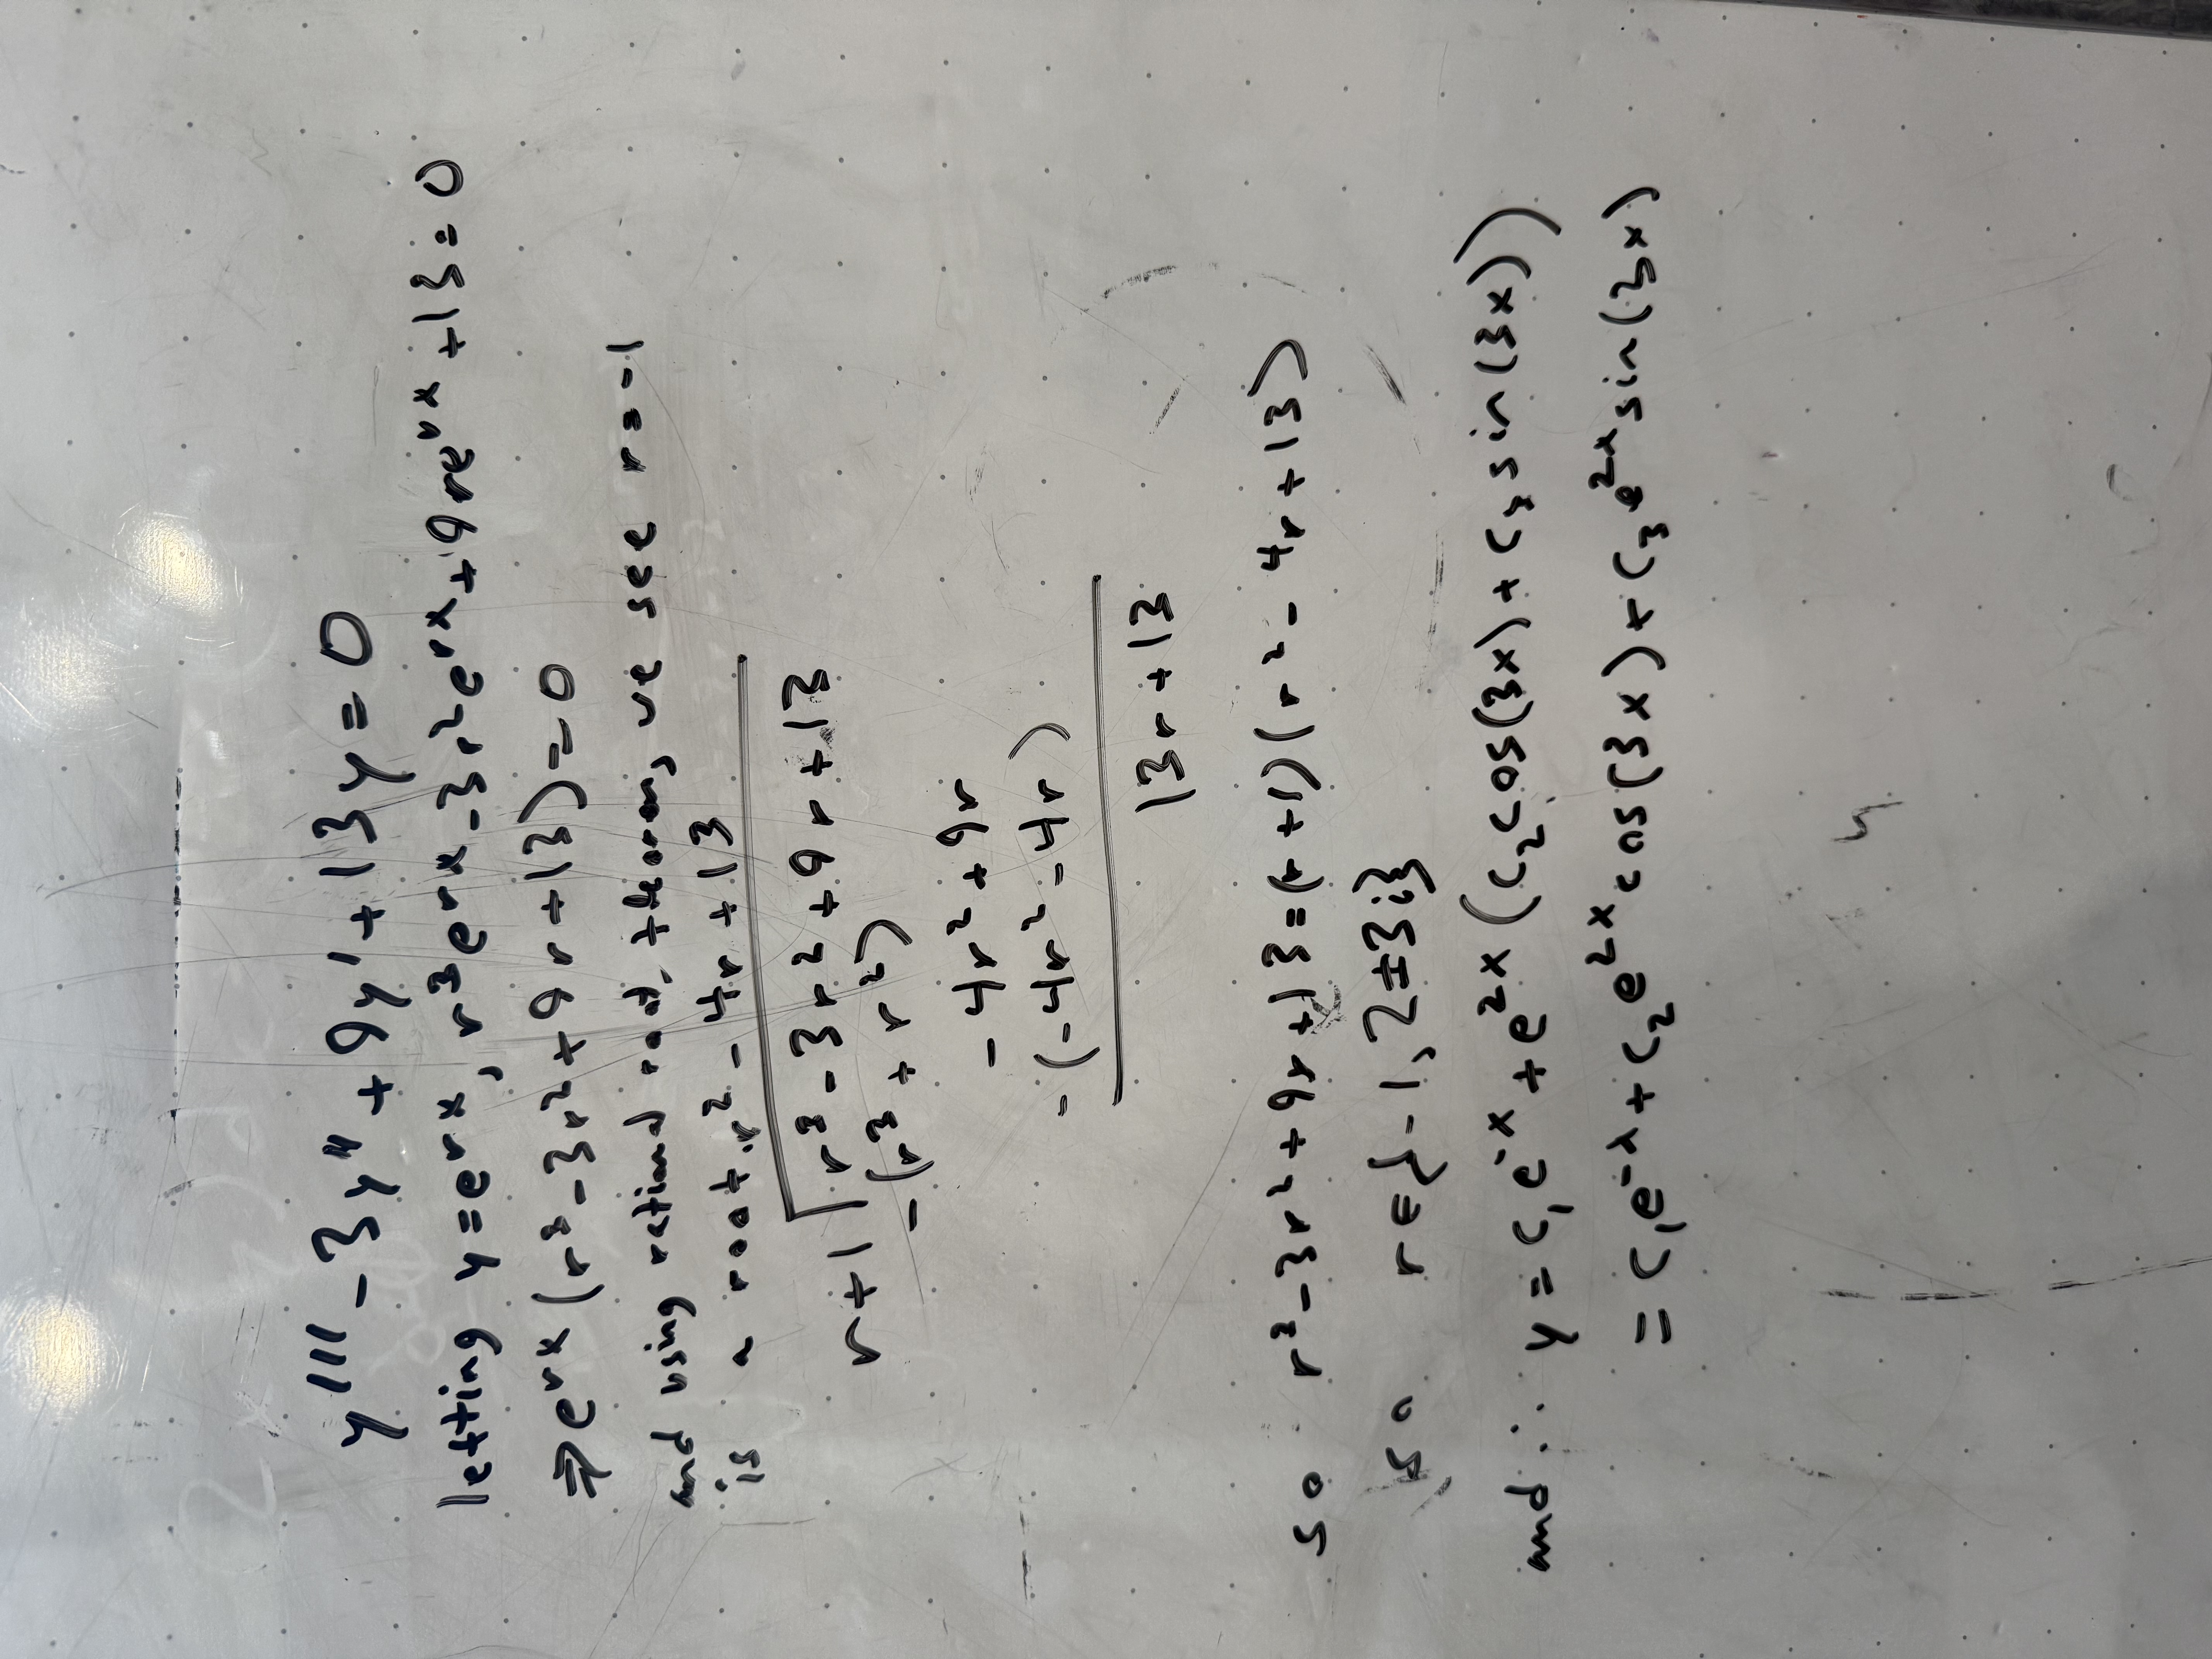 y''' - 3y'' + 9y' + 13y = 0
letting y = e^{rx}, r^3e^{rx} - 3r^2e^{rx} + 9re^{rx} + 13 = 0
⇒ e^{rx}(r^3 - 3r^2 + 9r + 13) = 0
and using rational root theorem, we see r = -1
is a root. r^2 - 4r + 13
r+1 | r^3 - 3r^2 + 9r + 13
-(r^3 + r^2)
-4r^2 + 9r
-(-4r^2 - 4r)
13r + 13
so r^3 - 3r^2 + 9r + 13 = (r+1)(r^2 - 4r + 13)
so r ∈ {-1, 2±3i}
and ∴ y = c_1e^{-x} + e^{2x}(c_2cos(3x) + c_3sin(3x))
= c_1e^{-x} + c_2e^{2x}cos(3x) + c_3e^{2x}sin(3x)